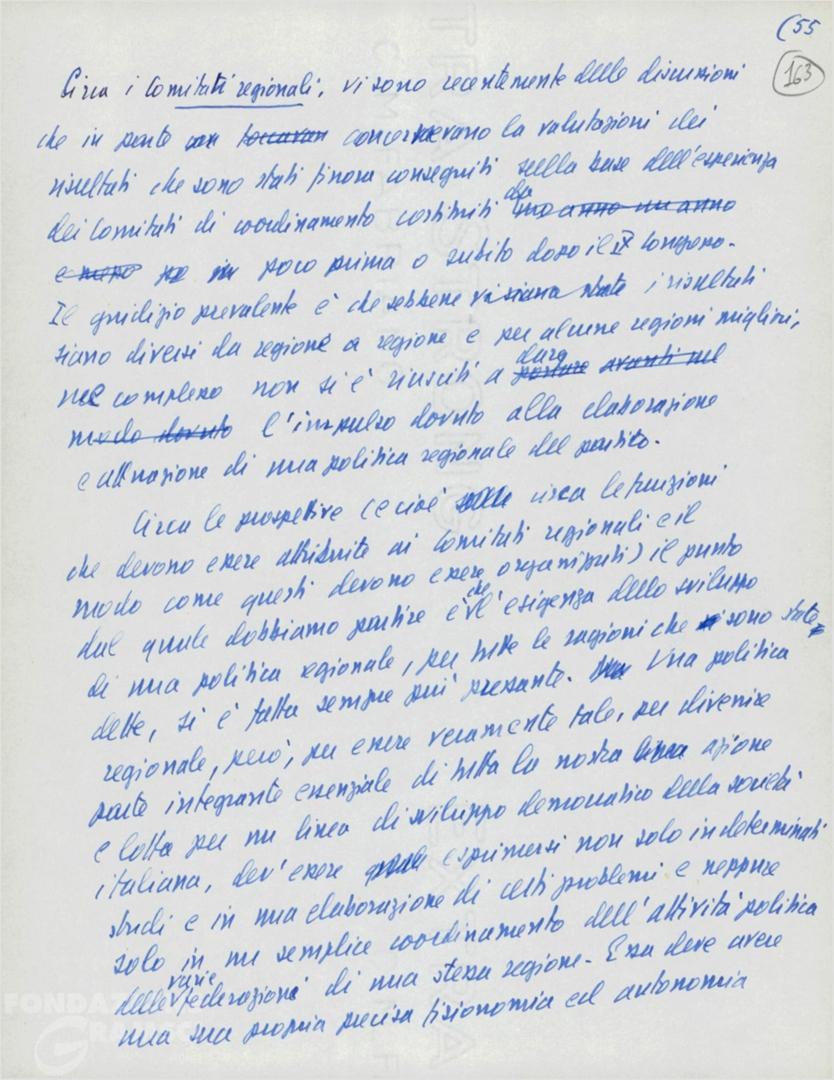 (55
163
Circa i Comitati regionali, vi sono recentemente delle discussioni
che in parte toccavan concernevano la valutazioni dei
risultati che sono stati finora conseguiti sulla base dell'esperienza
dei Comitati di coordinamento costituiti da uno anno un anno
e mezzo poco prima o subito dopo il IX Congresso.
Il giudizio prevalente è che sebbene vi siano state i risultati
siano diversi da regione a regione e per alcune regioni migliori,
nel complesso non si è riusciti a dare portare avanti nel
modo dovuto l'impulso dovuto alla elaborazione
e attuazione di una politica regionale del partito.
Circa le prospettive (e cioè sulle circa le funzioni
che devono essere attribuite ai Comitati regionali e il
modo come questi devono essere organizzati) il punto
dal quale dobbiamo partire è che l'esigenza dello sviluppo
di una politica regionale, per tutte le ragioni che si sono state
dette, si è fatta sempre più pressante. Una politica
regionale, però, per essere veramente tale, per divenire
parte integrante essenziale di tutta la nostra linea azione
e lotta per un linea di sviluppo democratico della società
italiana, dev'essere esprimersi non solo in determinati
studi e in una elaborazione di certi problemi e neppure
solo in un semplice coordinamento dell'attività politica
delle varie federazioni di una stessa regione. Essa deve avere
una sua propria precisa fisionomia ed autonomia
FONDAZIONE
GRAMSCI